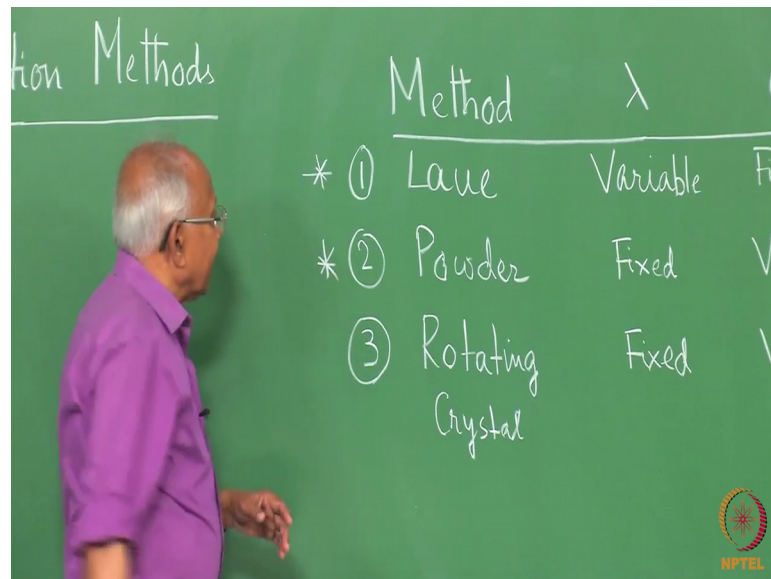 tion Methods
Method λ
* ① Laue Variable Fi
* ② Powder Fixed V
③ Rotating Fixed V
Crystal
NPTEL